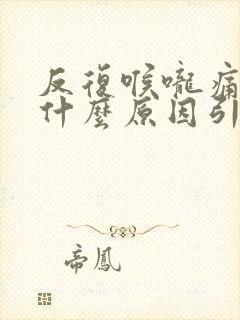 反復喉嚨痛
什麼原因引
帝鳳